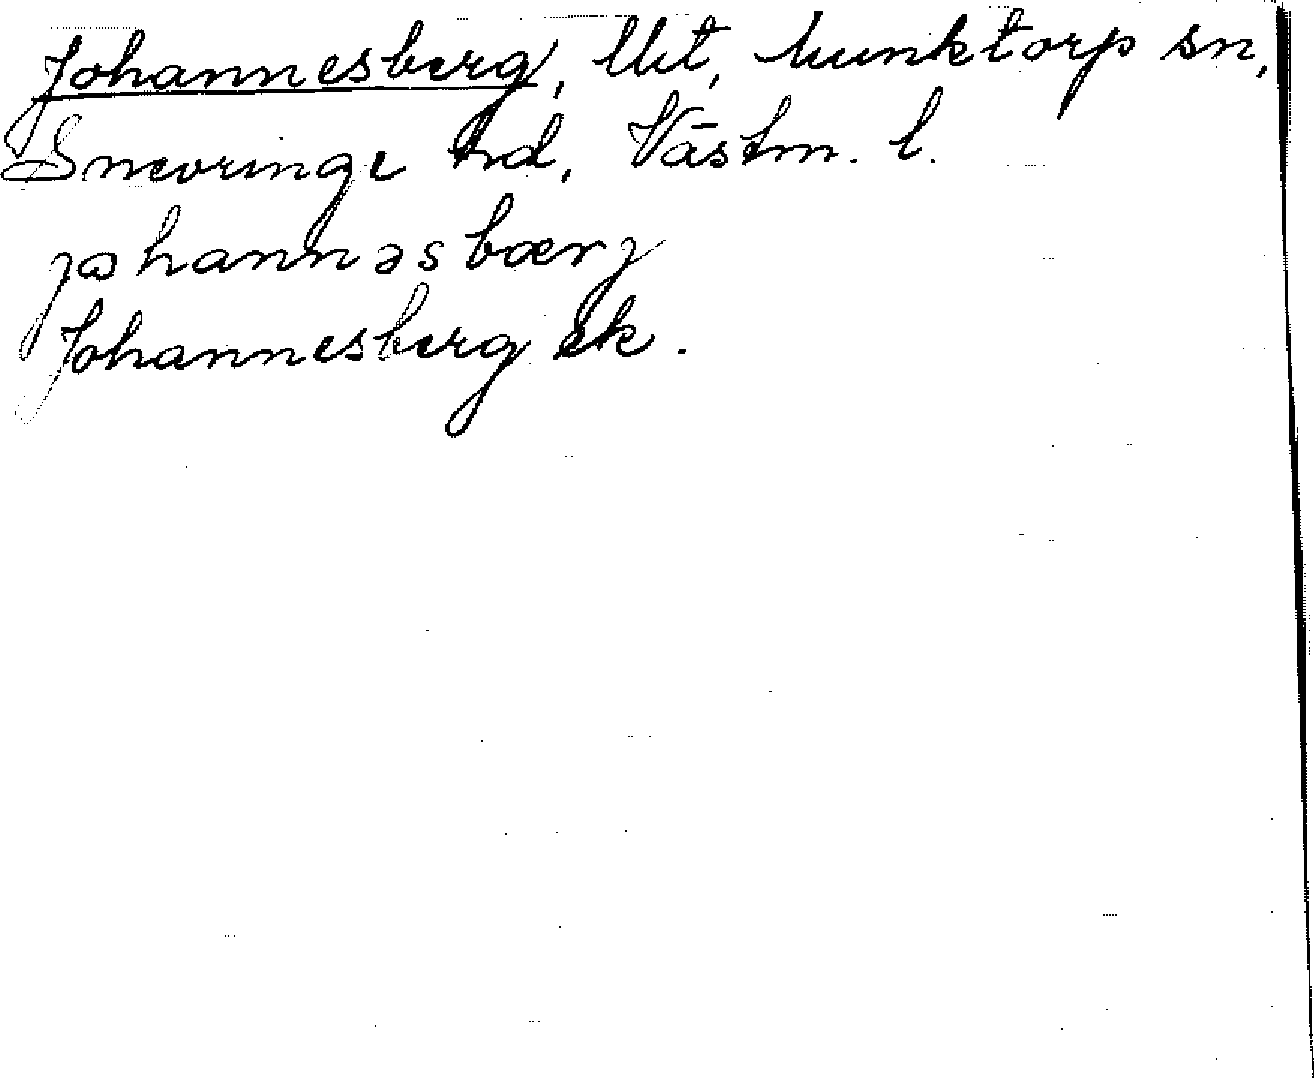 Johannesberg, lht, Munktorp sn,
Snevringe hd, Västm. l.
johannəsbærj
Johannesberg ek.